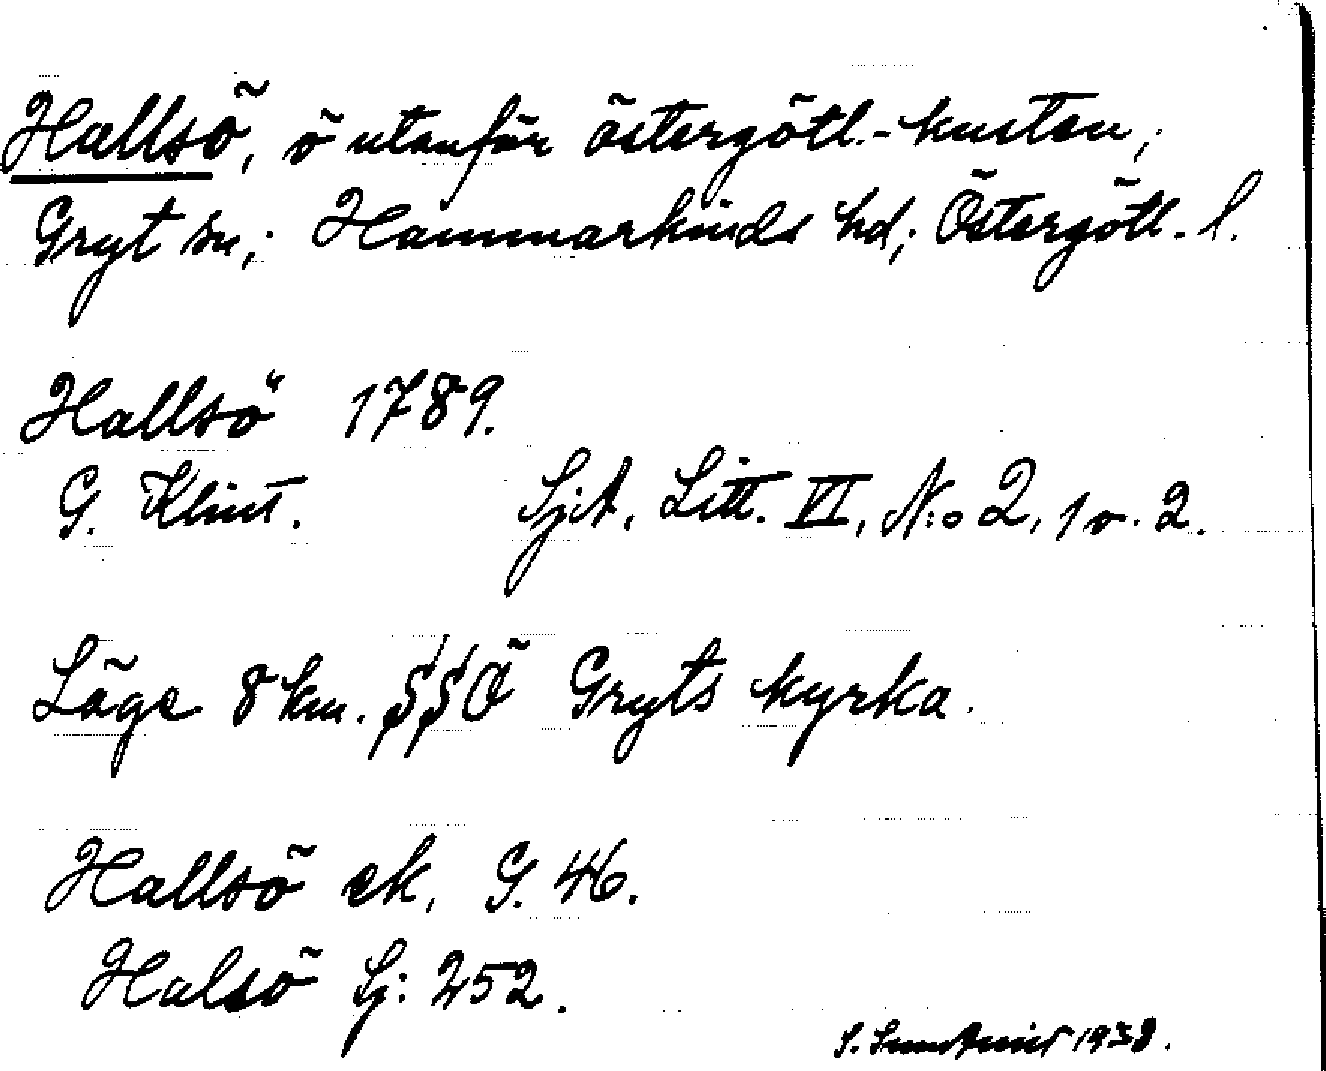 Hallsö, ö utanför östergötl.-kusten,
Gryt sn; Hammarkinds hd; Östergötl. l.
Hallsö 1789.
G. Klint. SjA, Litt. VI, N:o 2, 1 o. 2.
Läge 8 km. SSÖ Gryts kyrka.
Hallsö ek, G. 46.
Halsö Sj: 252.
S. 1938.